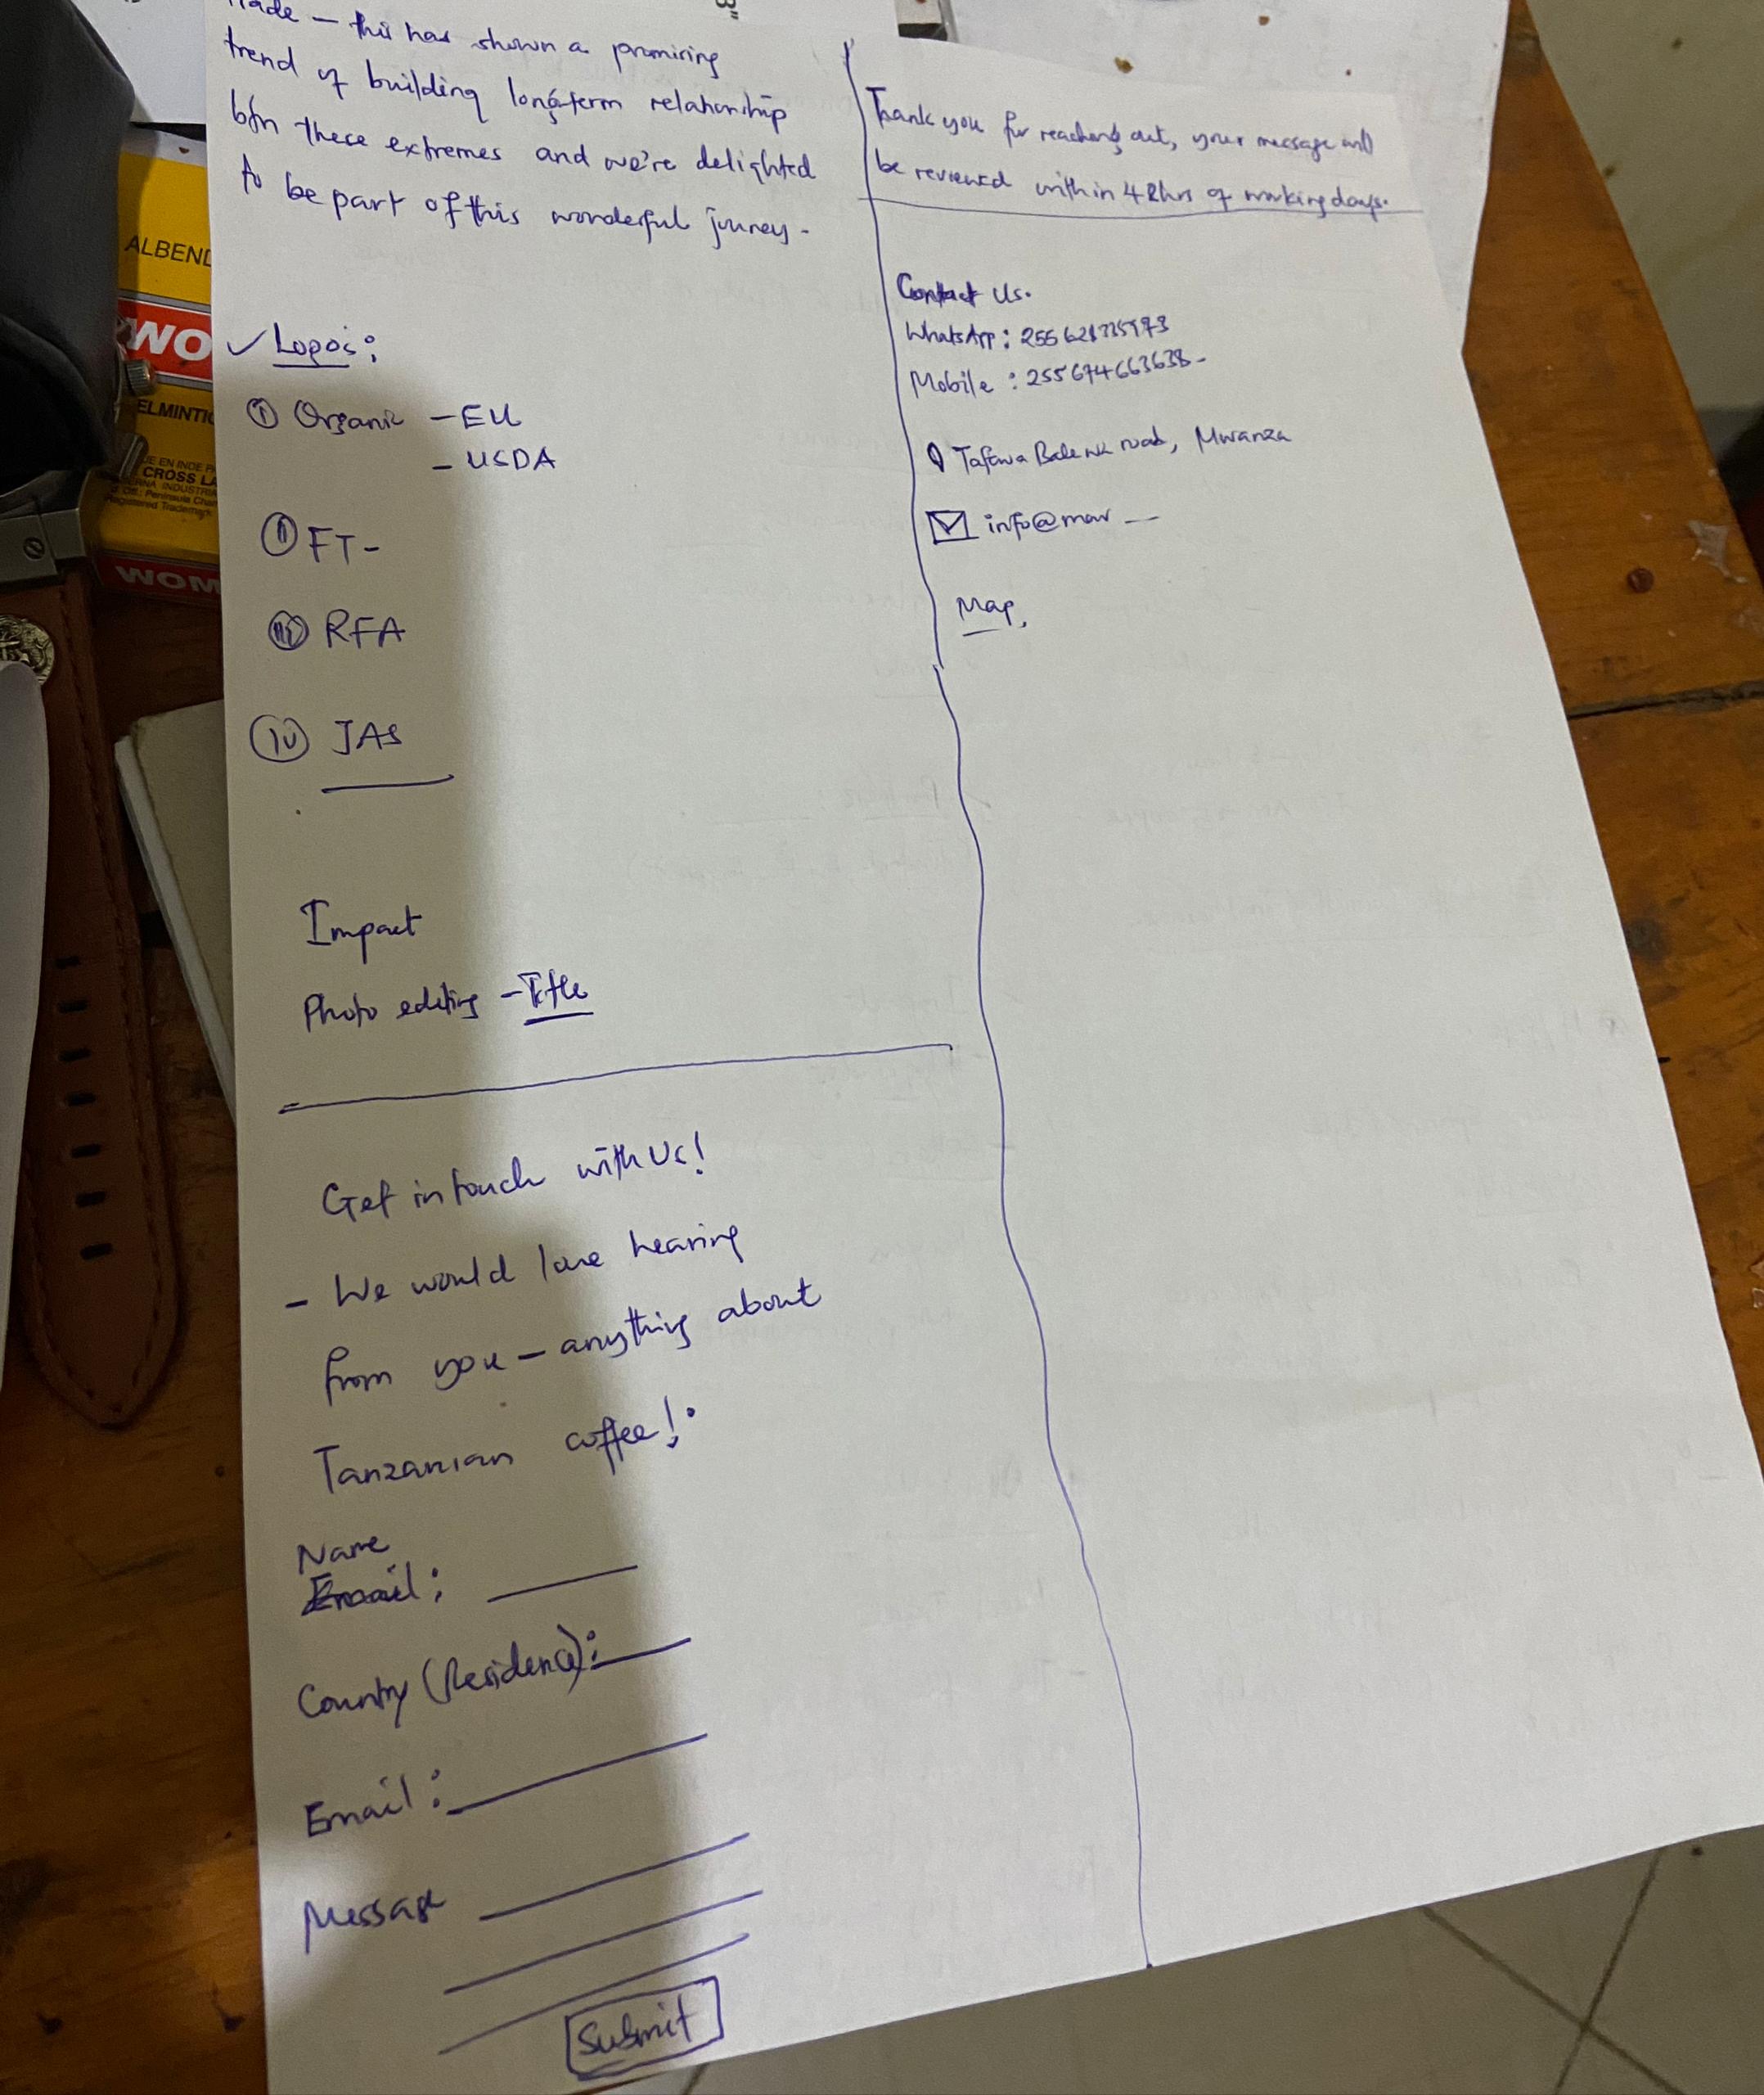 Trade — this has shown a promising
trend of building long-term relationship
btn these extremes and we're delighted
to be part of this wonderful jouney -
✓ Logos:
① Organic - EU
- USDA
ⓘⓘ FT -
ⓘⓘⓘ RFA
ⓘⓥ JAS
Impact
Photo editing - Title
Get in touch with Us!
- We would love hearing
from you - anything about
Tanzanian coffee!
Name
Email:
Country (Residence):
Email:
Message
Submit
Thank you for reaching out, your message will
be reviewed within 48hrs of working days.
Contact Us.
WhatsApp:
Mobile : 255674663638-
Tafawa Balewa road, Mwanza
info@maw
Map,
ALBEND
WO
ELMINTIC
CROSS LA
Registered Trademark
WOM